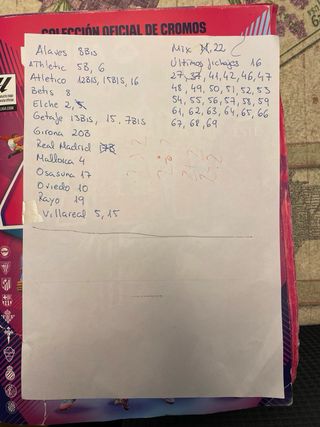 COLECCIÓN OFICIAL DE CROMOS
Alaves 8Bis
Athletic 5B, 6
Atletico 12BIS, 15BIS, 16
Betis 8
Elche 2,
Getafe 13Bis, 15, 7BIS
Girona 20B
Real Madrid
Mallorca 4
Osasuna 17
Oviedo 10
Rayo 19
Villareal 5, 15
Mix 22
Últimos fichajes 16
27, 37, 41, 42, 46, 47
48, 49, 50, 51, 52, 53
54, 55, 56, 57, 58, 59
61, 62, 63, 64, 65, 66
67, 68, 69